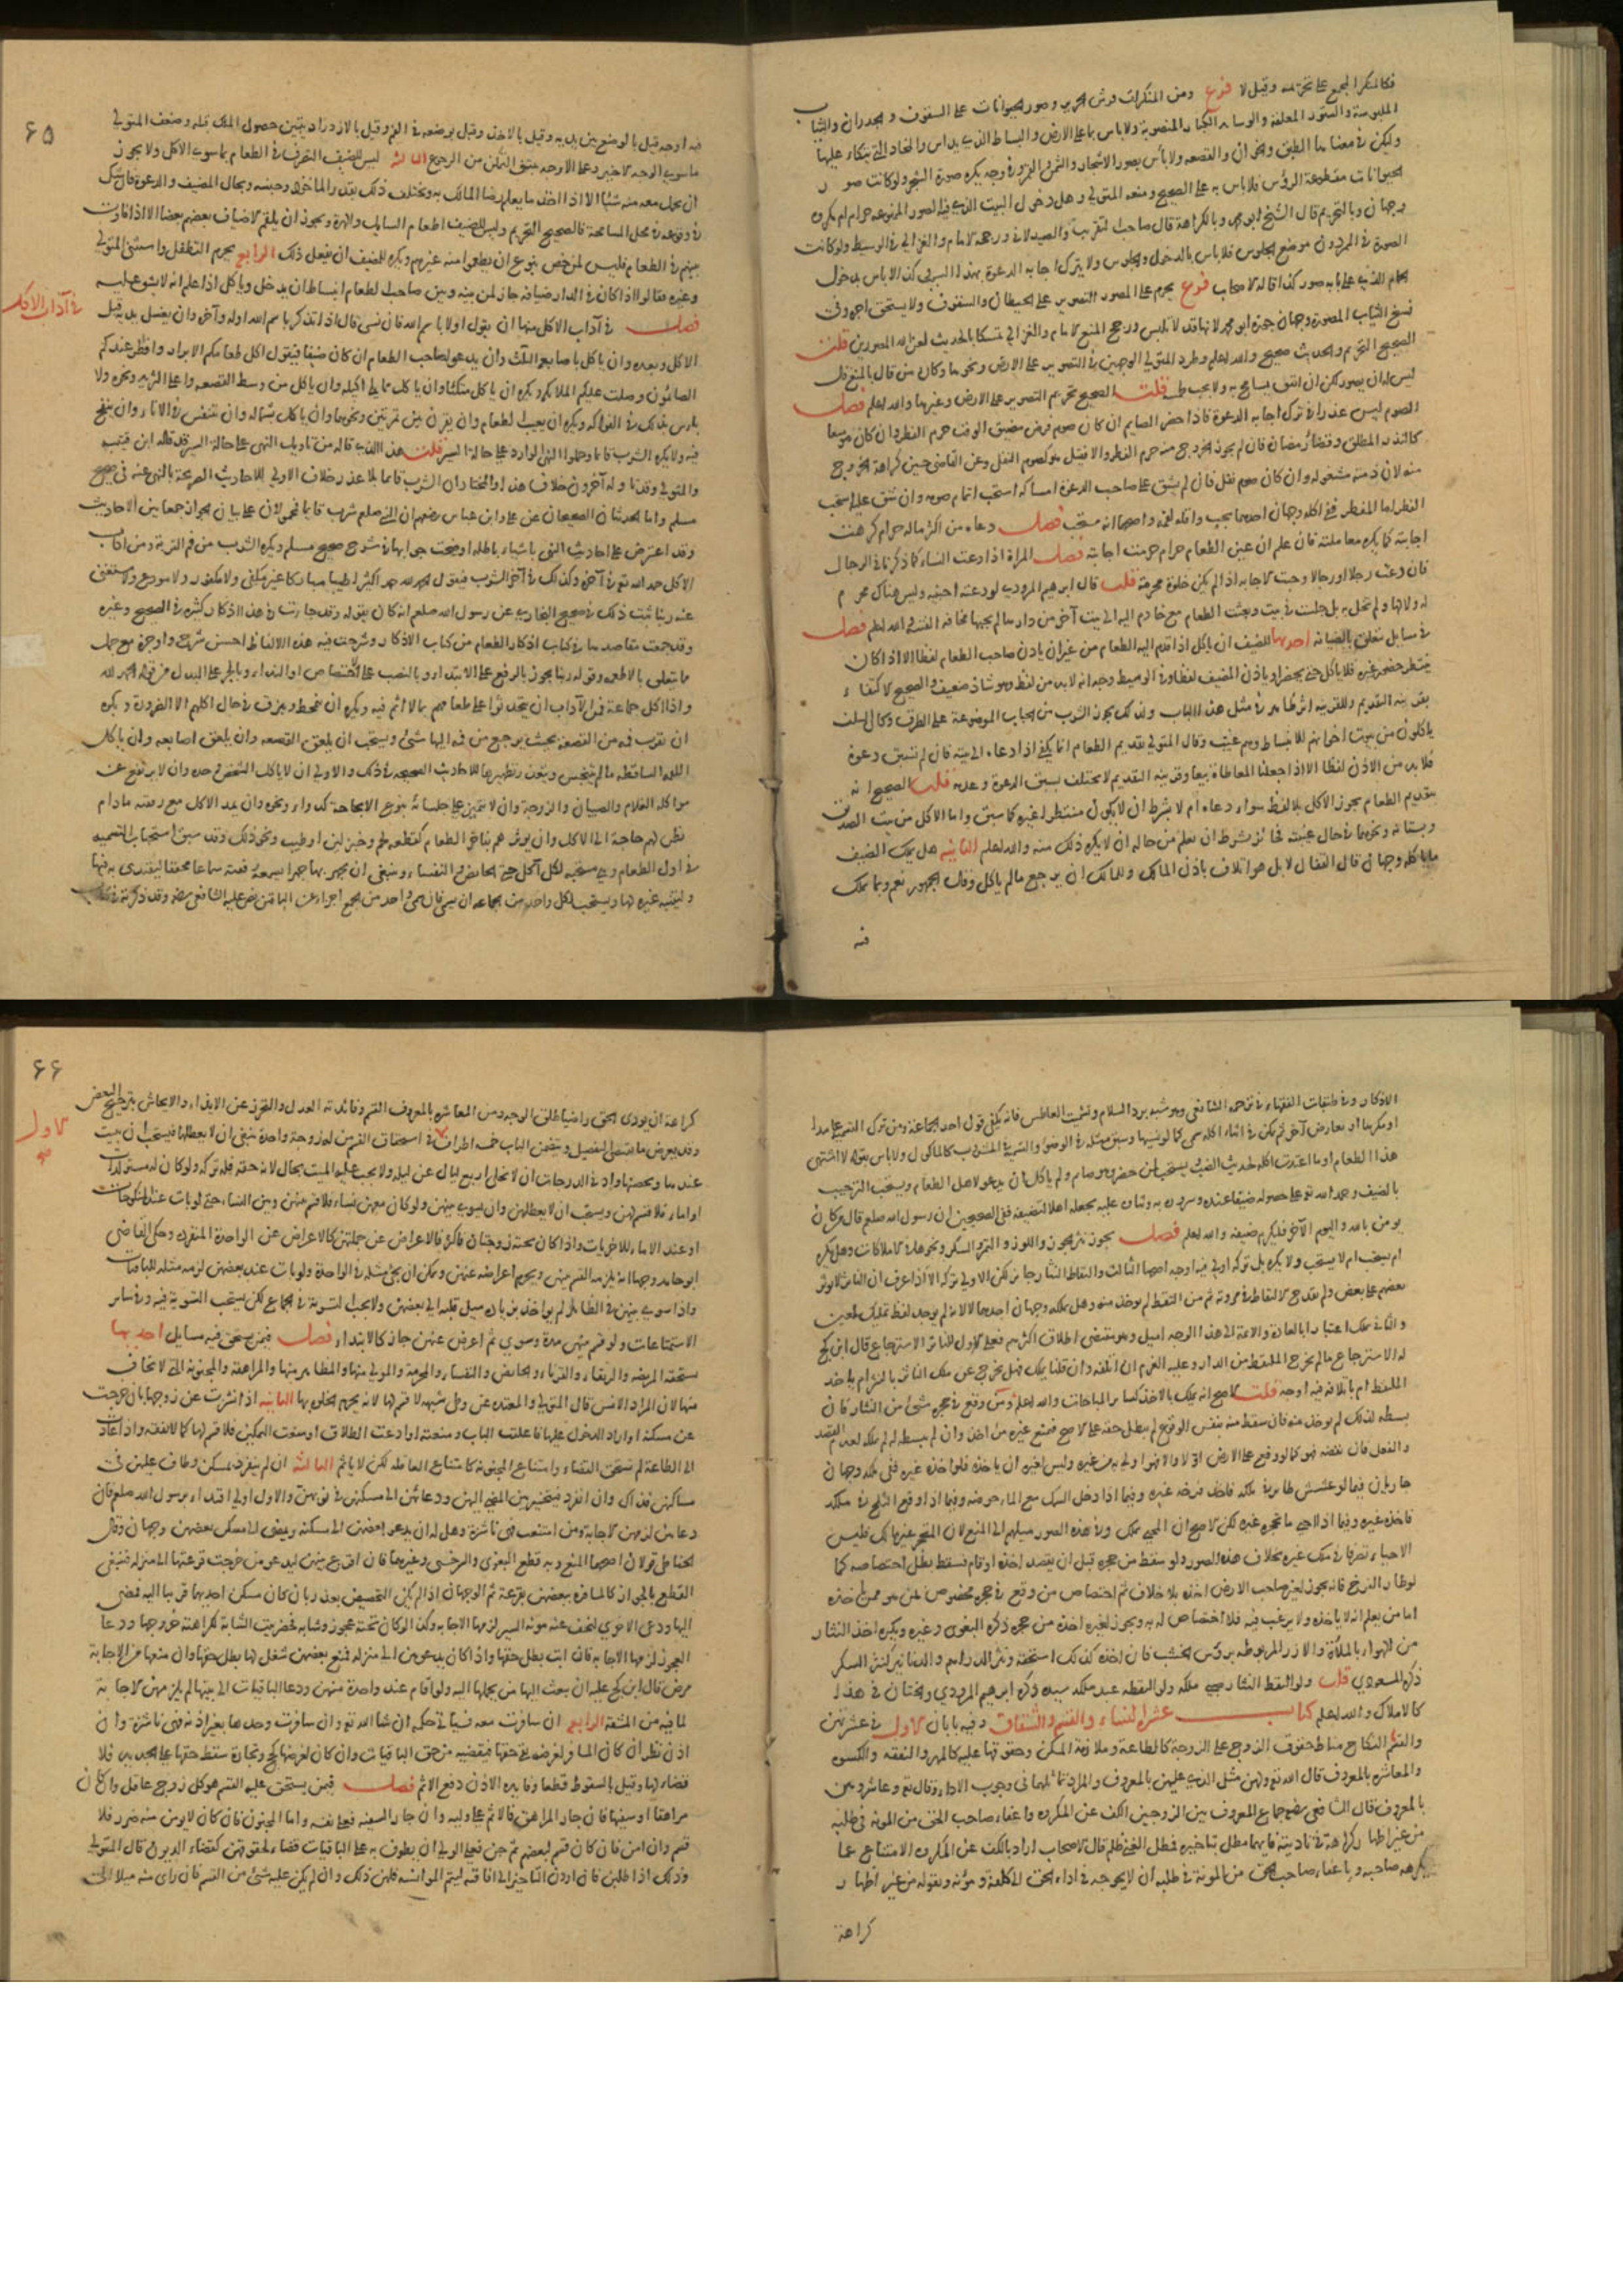 فكالمنكر المجمع على تحريمه وقيل لا فرع ومن المنكرات فرش الحرير وصور الحيوانات على السقوف والجدران والثياب
الملبوسة والستور المعلقة والوسايد الكبار المنصوبة ولا باس بما على الارض والبساط الذي يداس والمخاد التي يتكاء عليها
وليكن في معناها الطبق والخوان والقصعه ولا باس بصور الاشجار والشمس والقمر وفي وجه يكره صورة الشجر ولو كانت صور
الحيوانات مقطوعة الرؤس فلا باس به على الصحيح ومنعه المتولي وهل دخول البيت الذي فيه الصور الممنوعه حرام ام مكروه
وجهان وبالتحريم قال الشيخ ابو محمد وبالكراهة قال صاحب التقريب والصيدلاني ورجحه الامام والغزالي في الوسيط ولو كانت
الصورة في الممر دون موضع الجلوس فلا باس بالدخول والجلوس ولا يترك اجابه الدعوة بهذا السبب وكذا لا باس بدخول
الحمام الذي على بابه صور كذا قاله الاصحاب فرع يحرم على المصور التصوير على الحيطان والسقوف ولا يستحق اجره وفي
نسج الثياب المصوره وجهان جوزه ابو محمد لانها قد لا تلبس ورجح المنع الامام والغزالي تمسكا بالحديث لعن الله المصورين قلت
الصحيح التحريم والحديث صحيح والله اعلم وطرد المتولي الوجهين في التصوير على الارض ونحوها وكان من قال بالمنع قال
ليس له ان يصور لكن ان اتفق يسامح به ولا يجب طمسه قلت الصحيح تحريم التصوير على الارض وغيرها والله اعلم فصل
الصوم ليس عذرا في ترك اجابه الدعوة فاذا حضر الصايم ان كان صوم فرض مضيق الوقت حرم الفطر وان كان موسعا
كالنذر المطلق وقضاء رمضان فان لم يجوز الخروج منه حرم الفطر والا فقيل هو كصوم النفل وعن القاضي حسين كراهة الخروج
منه لان ذمته مشغوله وان كان صوم نفل فان لم يشق على صاحب الدعوة امساكه استحب اتمام صومه وان شق عليه استحب
الفطر اما المفطر ففي اكله وجهان احدهما يجب واقله لقمه واصحهما انه مستحب فصل دعاه من اكثر ماله حرام كرهت
اجابته كما يكره معاملته فان علم ان عين الطعام حرام حرمت اجابته فصل المراة اذا دعت النساء كما ذكرنا في الرجال
فان دعت رجلا او رجالا وجبت الاجابه اذا لم يكن خلوة محرمة قلت قال ابرهيم المروذي لو دعته اجنبيه وليس هناك محرم
له ولا لها ولم تخل به بل جلست في بيت وبعثت الطعام مع خادم اليه الى بيت آخر من دارها لم يجبها مخافه الفتنه والله اعلم فصل
في مسايل تتعلق بالضيافه احديها للضيف ان ياكل اذا قدم اليه الطعام من غير ان ياذن صاحب الطعام لفظا الا اذا كان
ينتظر حضور غيره فلا ياكل حتى يحضر او ياذن المضيف لفظا وفي الوسيط وجه انه لا بد من لفظ وهو شاذ ضعيف والصحيح الاكتفاء
بقرينه التقديم وللقرينه اثر ظاهر في مثل هذا الباب ولذلك يجوز الشرب من الحباب الموضوعة على الطرق وكان السلف
ياكلون من بيوت اخوانهم للانبساط وهم غيب وقال المتولي تقديم الطعام انما يكفي اذا دعاه الى بيته فان لم تسبق دعوة
فلا بد من الاذن لفظا الا اذا جعلنا المعاطاة بيعا وقرينه التقديم لا تختلف بسبق الدعوة وعدمه قلت الصحيح انه
بتقديم الطعام يجوز الاكل بلا لفظ سواء دعاه ام لا بشرط ان لا يكون منتظرا لغيره كما سبق واما الاكل من بيت الصديق
وبستانه ونحوهما في حال غيبته فجائز بشرط ان يعلم من حاله ان لا يكره ذلك منه والله اعلم الثانيه هل يملك الضيف
ما ياكله وجهان قال القفال لا بل هو اتلاف باذن المالك وللمالك ان يرجع ما لم ياكل وقال الجمهور نعم وبما يملك
فيه
٦٥
فيه اوجه قيل بالوضع بين يديه وقيل بالاخذ وقيل بوضعه في الفم وقيل بالازدراد يتبين حصول الملك قبله وضعف المتولي
ما سوى الوجه الاخير وعلى الاوجه ينبني التمكن من الرجوع الثالثه ليس للضيف التصرف في الطعام بما سوى الاكل ولا يجوز
ان يحمل معه منه شيئا الا اذا اخذ ما يعلم رضا المالك به ويختلف ذلك بقدر الماخوذ وجنسه وبحال المضيف والدعوة فان شك
في وقوعه في محل المسامحة فالصحيح التحريم وليس للضيف اطعام السايل والهرة ويجوز ان يلقم الاضياف بعضهم بعضا الا اذا فاوت
بينهم في الطعام فليس لمن خص بنوع ان يطعموا منه غيرهم ويكره للمضيف ان يفعل ذلك الرابعه يحرم التطفل واستثنى المتولي
وغيره فقالوا اذا كان في الدار ضيافه جاز لمن بينه وبين صاحب الطعام انبساط ان يدخل وياكل اذا علم انه لا يشق عليه
في آداب الاكل
فصل في آداب الاكل منها ان يقول اولا باسم الله فان نسي قال اذا تذكر باسم الله اوله وآخره وان يغسل يده قبل
الاكل وبعده وان ياكل باصابعه الثلث وان يدعو لصاحب الطعام ان كان ضيفا فيقول اكل طعامكم الابرار وافطر عندكم
الصائمون وصلت عليكم الملائكة ويكره ان ياكل متكئا وان ياكل مما يلي اكيله وان ياكل من وسط القصعه واعلى الثريد ونحوه ولا
باس بذلك في الفواكه ويكره ان يعيب الطعام وان يقرن بين تمرتين ونحوهما وان ياكل بشماله وان يتنفس في الاناء وان ينفخ
فيه ولا يكره الشرب قائما وحملوا النهي الوارد على حالة السير قلت هذا الذي قاله من تاويل النهي على حالة السير قد قاله ابن قتيبه
والمتولي وقد تاوله آخرون بخلاف هذا والمختار ان الشرب قائما بلا عذر خلاف الاولى للاحاديث الصريحة بالنهي عنه في صحيح
مسلم واما الحديثان الصحيحان عن علي وابن عباس رضهم ان النبي صلعم شرب قايما فمحمولان على بيان الجواز جمعا بين الاحاديث
وقد اعترض على احاديث النهي باشياء باطله اوضحت جوابها في شرح صحيح مسلم ويكره الشرب من فم القربة ومن آداب
الاكل حمد الله تع في آخره وكذلك في آخر الشرب فيقول الحمد لله حمدا كثيرا طيبا مباركا غير مكفي ولا مكفور ولا مودع ولا مستغنى
عنه ربنا ثبت ذلك في صحيح البخاري عن رسول الله صلعم انه كان يقوله وقد جاءت في هذا اذكار كثيره في الصحيح وغيره
وقد جمعت مقاصدها في كتاب اذكار الطعام من كتاب الاذكار وشرحت فيه هذه الالفاظ احسن شرح واوجزه مع جمل
ما يتعلق بالاطعمه وقوله ربنا يجوز بالرفع على الابتداء وبالنصب على الاختصاص او النداء وبالجر على البدل من قوله الحمد لله
واذا اكل جماعة فمن الآداب ان يتحدثوا على طعامهم بما لا اثم فيه ويكره ان يتمخط ويبزق في حال اكلهم الا الضرورة ويكره
ان يقرب فمه من القصعه بحيث يرجع من فمه اليها شيء ويستحب ان يلعق القصعه وان يلعق اصابعه وان ياكل
اللقمه الساقطه ما لم تتنجس ويتعذر تطهيرها للاحاديث الصحيحه في ذلك والاولى ان لا ياكل الشخص وحده وان لا يرتفع عن
مواكله الغلام والصبيان والزوجة وان لا يتميز على جلسائه بنوع الا لحاجة كدواء ونحوه وان يمد الاكل مع رفقته ما دام
يظن لهم حاجة الى الاكل وان يوثرهم بفاخر الطعام كقطعه لحم وخبز لين او طيب ونحو ذلك وقد سبق استحباب التسميه
في اول الطعام وهي مستحبه لكل آكل حتى الحايض والنفساء وينبغي ان يجهر بها جهرا يسمعه رفقته سماعا محققا ليقتدى به فيها
ولينتبه غيره لها ويستحب لكل واحد من الجماعه ان يسمي فان سمى واحد من الجمع اجزا عن الباقين نص عليه الشافعي رضه وقد ذكرته في كتاب
الاذكار وفي طبقات الفقهاء في ترجمه الشافعي وهو شبيه برد السلام وتشميت العاطس فانه يكفي قول احد الجماعة ومن ترك التسميه عامدا
او مكرها او لعارض آخر ثم تمكن في اثناء اكله سمى كما لو نسيها وسبق مثله في الوضوء والتسميه في المشروب كالماكول ولا باس بقوله لا اشتهي
هذا الطعام او ما اعتدت اكله لحديث الضب ويستحب لمن حضر وهو صايم ولم ياكل ان يدعو لاهل الطعام ويستحب الترحيب
بالضيف وحمد الله تع على حصوله ضيفا عنده وسروره به وثناوه عليه لجعله اهلا لتضييفه ففي الصحيحين ان رسول الله صلعم قال من كان
يومن بالله واليوم الآخر فليكرم ضيفه والله اعلم فصل يجوز نثر الجوز واللوز والتمر والسكر ونحوها في الاملاكات وهل يكره
ام يستحب ام لا يستحب ولا يكره بل تركه اولى فيه اوجه اصحها الثالث والتقاط النثار جايز لكن الاولى تركه الا اذا عرف ان الناثر لا يوثر
بعضهم على بعض ولم يقدح الالتقاط في مروته ثم من التقط لم يوخذ منه وهل يملكه وجهان احدهما لا لانه لم يوجد لفظ تمليك لمعين
والثاني يملك اعتبارا بالعادة والائمة الى هذا الوجه اميل وهو مقتضى اطلاق اكثرهم فعلى الاول للناثر الاسترجاع قال ابن كج
له الاسترجاع ما لم يخرج الملتقط من الدار وعليه الغرم ان اتلفه وان قلنا يملك فهل يخرج عن ملك الناثر بالنثر ام باخذ
الملتقط ام باتلافه فيه اوجه قلت الاصح انه يملك بالاخذ كساير المباحات والله اعلم ومن وقع في حجره شيء من النثار فان
بسطه لذلك لم يوخذ منه فان سقط منه بنفس الوقوع لم يبطل حقه على الاصح فيمنع غيره من اخذه وان لم يبسطه له لم يملكه لعدم القصد
والفعل فان نفضه فهو كما لو وقع على الارض اولا والا فهو اولى به من غيره وليس لغيره ان ياخذه فلو اخذه غيره ففي ملكه وجهان
جاريان فيما لو عشش طاير في ملكه فاخذ فرخه غيره وفيما اذا دخل السمك مع الماء حوضه وفيما اذا وقع الثلج في ملكه
فاخذه غيره وفيما اذا احيي ما تحجره غيره لكن الاصح ان المحيي يملك وفي هذه الصور ميلهم الى المنع لان المتحجر غير مالك فليس
الاحياء تصرفا في ملك غيره بخلاف هذه الصور ولو سقط من حجره قبل ان يقصد اخذه او قام فسقط بطل اختصاصه كما
لو طار الفرخ فانه يجوز لغير صاحب الارض اخذه بلا خلاف ثم اختصاص من وقع في حجره مخصوص بمن هو ممن ياخذه
اما من يعلم انه لا ياخذه ولا يرغب فيه فلا اختصاص له به ويجوز لغيره اخذه من حجره ذكره البغوي وغيره ويكره اخذ النثار
من الهواء بالملاءة والازر المربوطه بروس الخشب فان اخذه كذلك استحقه ونثر الدراهم والدنانير كنثر السكر
ذكره المسعودي قلت ولو التقط النثار صبي ملكه ولو التقطه عبد ملكه سيده ذكره ابرهيم المروذي والختان في هذا
كالاملاك والله اعلم كتاب عشرة النساء والقسم والشقاق وفيه بابان الاول في عشرتهن
والقسم النكاح مناط حقوق الزوج على الزوجة كالطاعة وملازمة المسكن وحقوقها عليه كالمهر والنفقه والكسوه
والمعاشره بالمعروف قال الله تع ولهن مثل الذي عليهن بالمعروف والمراد تماثلهما في وجوب الاداء وقال تع وعاشروهن
بالمعروف قال الشافعي رضه جماع المعروف بين الزوجين الكف عن المكروه واعفاء صاحب الحق من المونه في طلبه
من غير اظهار كراهة في تاديته فايهما مطل بتاخيره فمطل الغني ظلم قال الاصحاب اراد بالكف عن المكروه الامتناع عما
يكرهه صاحبه وباعفاء صاحب الحق من المونة في طلبه ان لا يحوجه في اداء الحق الى كلفة ومؤنه وبقوله من غير اظهار
كراهة
٦٦
كراهة ان يودي الحق راضيا طلق الوجه ومن المعاشره بالمعروف القسم وفائدته العدل والتحرز عن الايذاء والايحاش بترجيح البعض
الاول
وقد يعرض ما يقتضي التفضيل ويتضمن الباب خمسة اطراف في استحقاق القسم من له زوجة واحدة ينبغي ان لا يعطلها فيستحب ان يبيت
عندها ويحصنها وادنى الدرجات ان لا تخلي اربع ليال عن ليلة ولا يجب عليه المبيت بحال لانه حقه فله تركه ولو كان له مستولدات
او اماء فلا قسم لهن ويستحب ان لا يعطلهن وان يسوي بينهن ولو كان معهن نساء فلا قسم بينهن وبين النساء حتى لو بات عند المنكوحات
او عند الاماء للاخريات واذا كان تحته زوجتان فاكثر فالاعراض عن جملتهن كالاعراض عن الواحدة المنفرده وحكى القاضي
ابو حامد وجها انه يلزمه القسم بينهن ويحرم اعراضه عنهن ويمكن ان يجيء مثله في الواحدة ولو بات عند بعضهن لزمه مثله للباقيات
واذا سوى بينهن في الظاهر لم يواخذ بزيادة ميل قلبه الى بعضهن ولا يجب التسوية في الجماع لكن يستحب التسوية فيه وفي ساير
الاستمتاعات ولو قسم بينهن مدة وسوى ثم اعرض عنهن جاز كالابتداء فصل فيمن يستحق فيه مسايل احديها
يستحقه المريضه والرتقاء والقرناء والحايض والنفساء والمحرمه والمولي منها والمظاهر منها والمراهقة والمجنونه التي لا يخاف
منها لان المراد الانس قال المتولي والمعتده عن وطي شبهه لا قسم لها لانه يحرم الخلوة بها الثانيه اذا نشزت عن زوجها بان خرجت
عن مسكنه او اراد الدخول عليها فاغلقت الباب ومنعته او ادعت الطلاق او منعت التمكين فلا قسم لها كما لا نفقه واذا عادت
الى الطاعة لم تستحق القضاء وامتناع المجنونه كامتناع العاقله لكن لا ياثم الثالثه ان لم ينفرد بمسكن وطاف عليهن في
مساكنهن فذاك وان انفرد فيتخير بين المضي اليهن ودعائهن الى مسكنه في نوبهن والاول اولى اقتداء برسول الله صلعم فان
دعاهن لزمهن الاجابة ومن امتنعت فهي ناشزة وهل له ان يدعو بعضهن الى مسكنه ويمضي الى مسكن بعضهن وجهان وقال
الحناطي قولان اصحهما المنع وبه قطع البغوي والسرخسي وغيرهما فان اقرع بينهن ليدعو من خرجت قرعتها الى منزله فينبغي
القطع بالجواز كالمسافره ببعضهن بقرعة ثم الوجهان اذا لم يكن التخصيص بعذر بان كان مسكن احديهما قريبا اليه فمضى
اليها ودعى الاخرى لتخف عنه مونه السير لزمها الاجابه وكذا لو كان تحته عجوز وشابه فحضر بيت الشابة لكراهة خروجها ودعا
العجوز لزمها الاجابه فان ابت بطل حقها واذا كان يدعوهن الى منزله فمنع بعضهن شغل لها بطل حقها وان منعها من الاجابة
مرض قال ابن كج عليه ان يبعث اليها من يحملها اليه ولو اقام عند واحدة منهن ودعا الباقيات الى بيتها لم يلزمهن الاجابة
لما فيه من المشقة الرابعه ان سافرت معه فسياتي حكمه ان شاء الله تع وان سافرت وحدها بغير اذنه فهي ناشزة وان
اذن نظر ان كان السفر لغرضه بقي حقها فيقضيه من حق الباقيات وان كان لغرضها كحج وتجارة سقط حقها على الجديد فلا
قضاء لها وقيل بالسقوط قطعا وفايده الاذن دفع الاثم فصل فيمن يستحق عليه القسم هو كل زوج عاقل وان كان
مراهقا او سفيها فان جار المراهق فالاثم على وليه وان جار السفيه فعلى نفسه واما المجنون فان كان لا يومن منه ضرر فلا
قسم وان امن فان كان قسم لبعضهن ثم جن فعلى الولي ان يطوف به على الباقيات قضاء لحقوقهن كقضاء الديون قال المتولي
وذلك اذا طلبن فان اردن التاخير الى افاقته ليتم الموانسه فلهن ذلك وان لم يكن عليه شيء من القسم فان راى منه ميلا الى